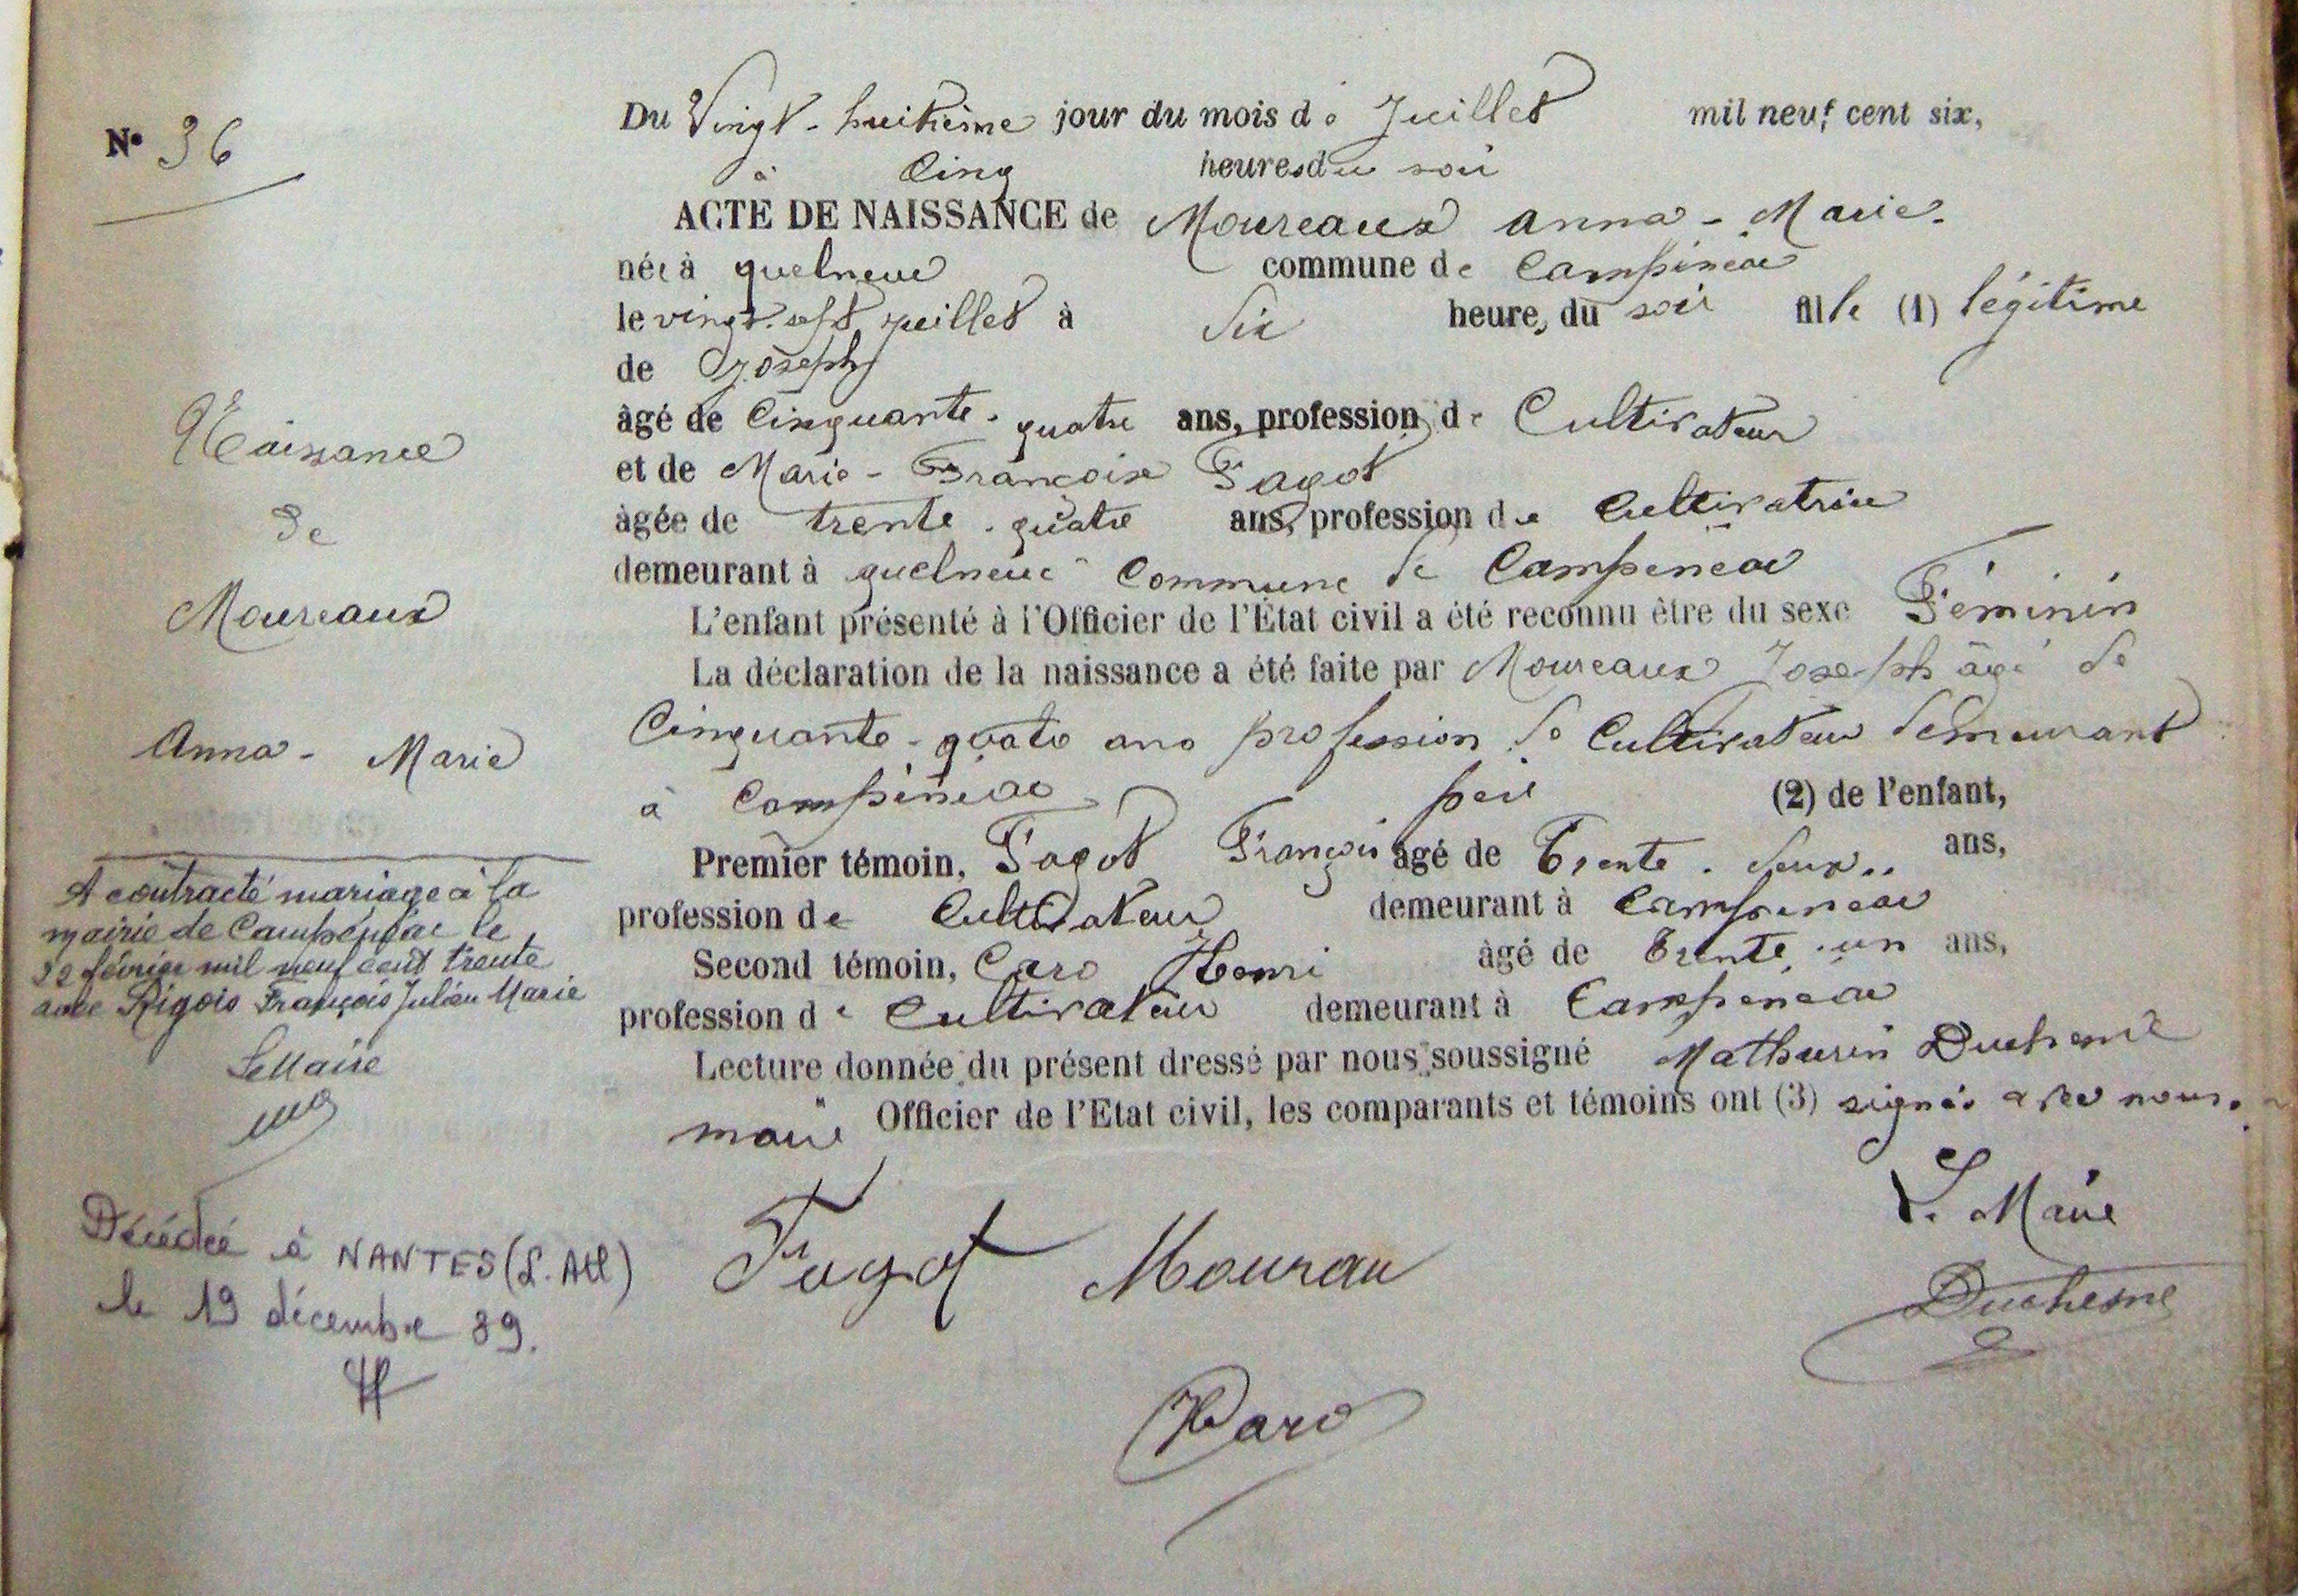 N° 36
Du Vingt-huitième jour du mois de Juillet mil neuf cent six,
à Cinq heures du soir
ACTE DE NAISSANCE de Moureaux Anna-Marie
née à quelneuc commune de Campénéac
le vingt-sept juillet à Six heures du soir fille (1) légitime
de Joseph
âgé de Cinquante-quatre ans, profession de Cultivateur
et de Marie-Françoise Fagot
âgée de trente-quatre ans, profession de Cultivatrice
demeurant à quelneuc Commune de Campénéac
L'enfant présenté à l'Officier de l'État civil a été reconnu être du sexe Féminin
La déclaration de la naissance a été faite par Moureaux Joseph âgé de
Cinquante-quatre ans profession de Cultivateur demeurant
à Campénéac père (2) de l'enfant,
Premier témoin, Fagot François âgé de Trente-deux ans,
profession de Cultivateur demeurant à Campénéac
Second témoin, Caro Henri âgé de Trente-un ans,
profession de Cultivateur demeurant à Campénéac
Lecture donnée du présent dressé par nous soussigné Mathurin Duchesne
maire Officier de l'Etat civil, les comparants et témoins ont (3) signés avec nous.
Fagot Mourau
L. Maire
Duchesne
HCaro
Naissance
de
Moureaux
Anna-Marie
A contracté mariage à la
mairie de Campénéac le
22 février mil neuf cent trente
avec Rigois François Julien Marie
Le Maire
Décédée à NANTES (L. Atl)
le 19 décembre 89.